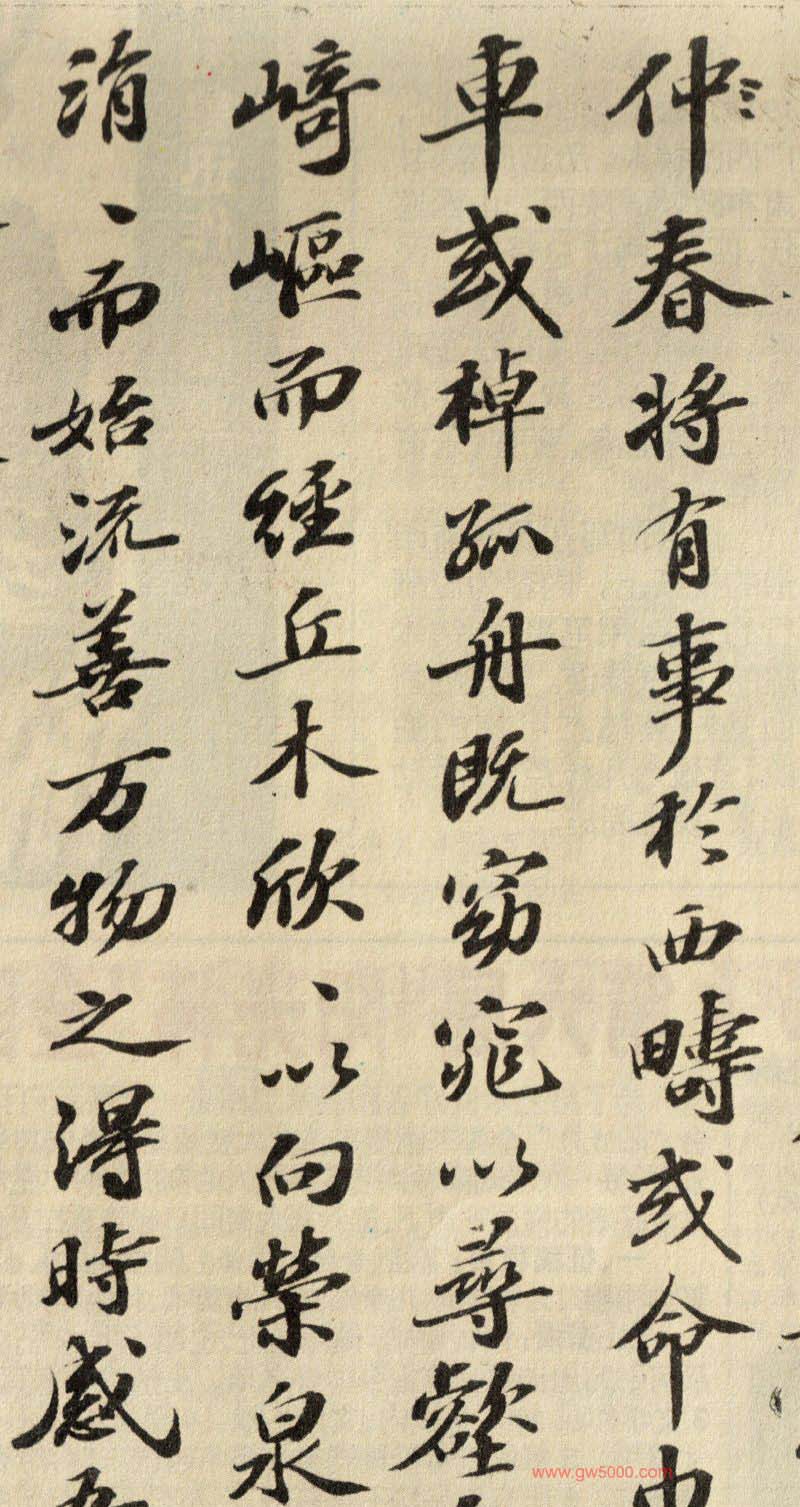 仲春将有事於西疇或命巾
車或棹孤舟既窈窕以尋壑
崎嶇而經丘木欣、以向榮泉
涓、而始流善万物之得時感吾
www.gw5000.com